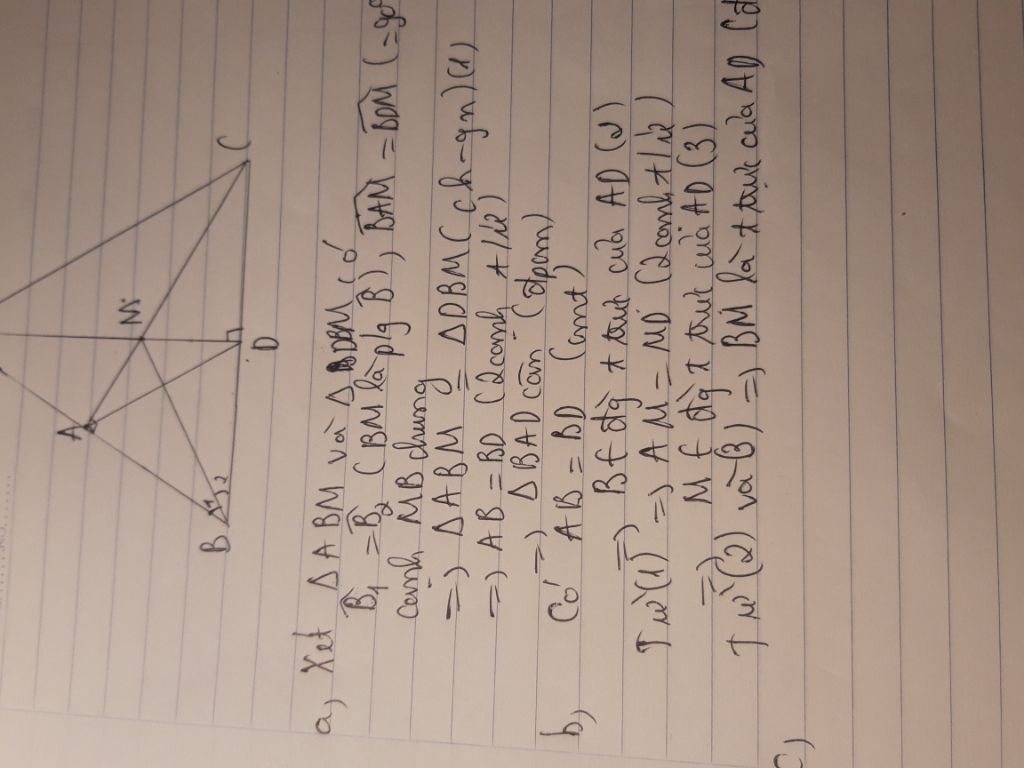 A
M
B
1
2
D
C
a) Xét ΔABM và ΔDBM có
B̂₁ = B̂₂ (BM là p/g B̂), BAM = BDM (=90°
cạnh MB chung
=> ΔABM = ΔDBM (ch-gn) (1)
=> AB = BD (2 cạnh t/ứ)
=> ΔBAD cân (đpcm)
b) Có AB = BD (cmt)
=> B ∈ đg t trực của AD (2)
Từ (1) => AM = MD (2 cạnh t/ứ)
=> M ∈ đg t trực của AD (3)
Từ (2) và (3) => BM là t trực của AD (đ
c)